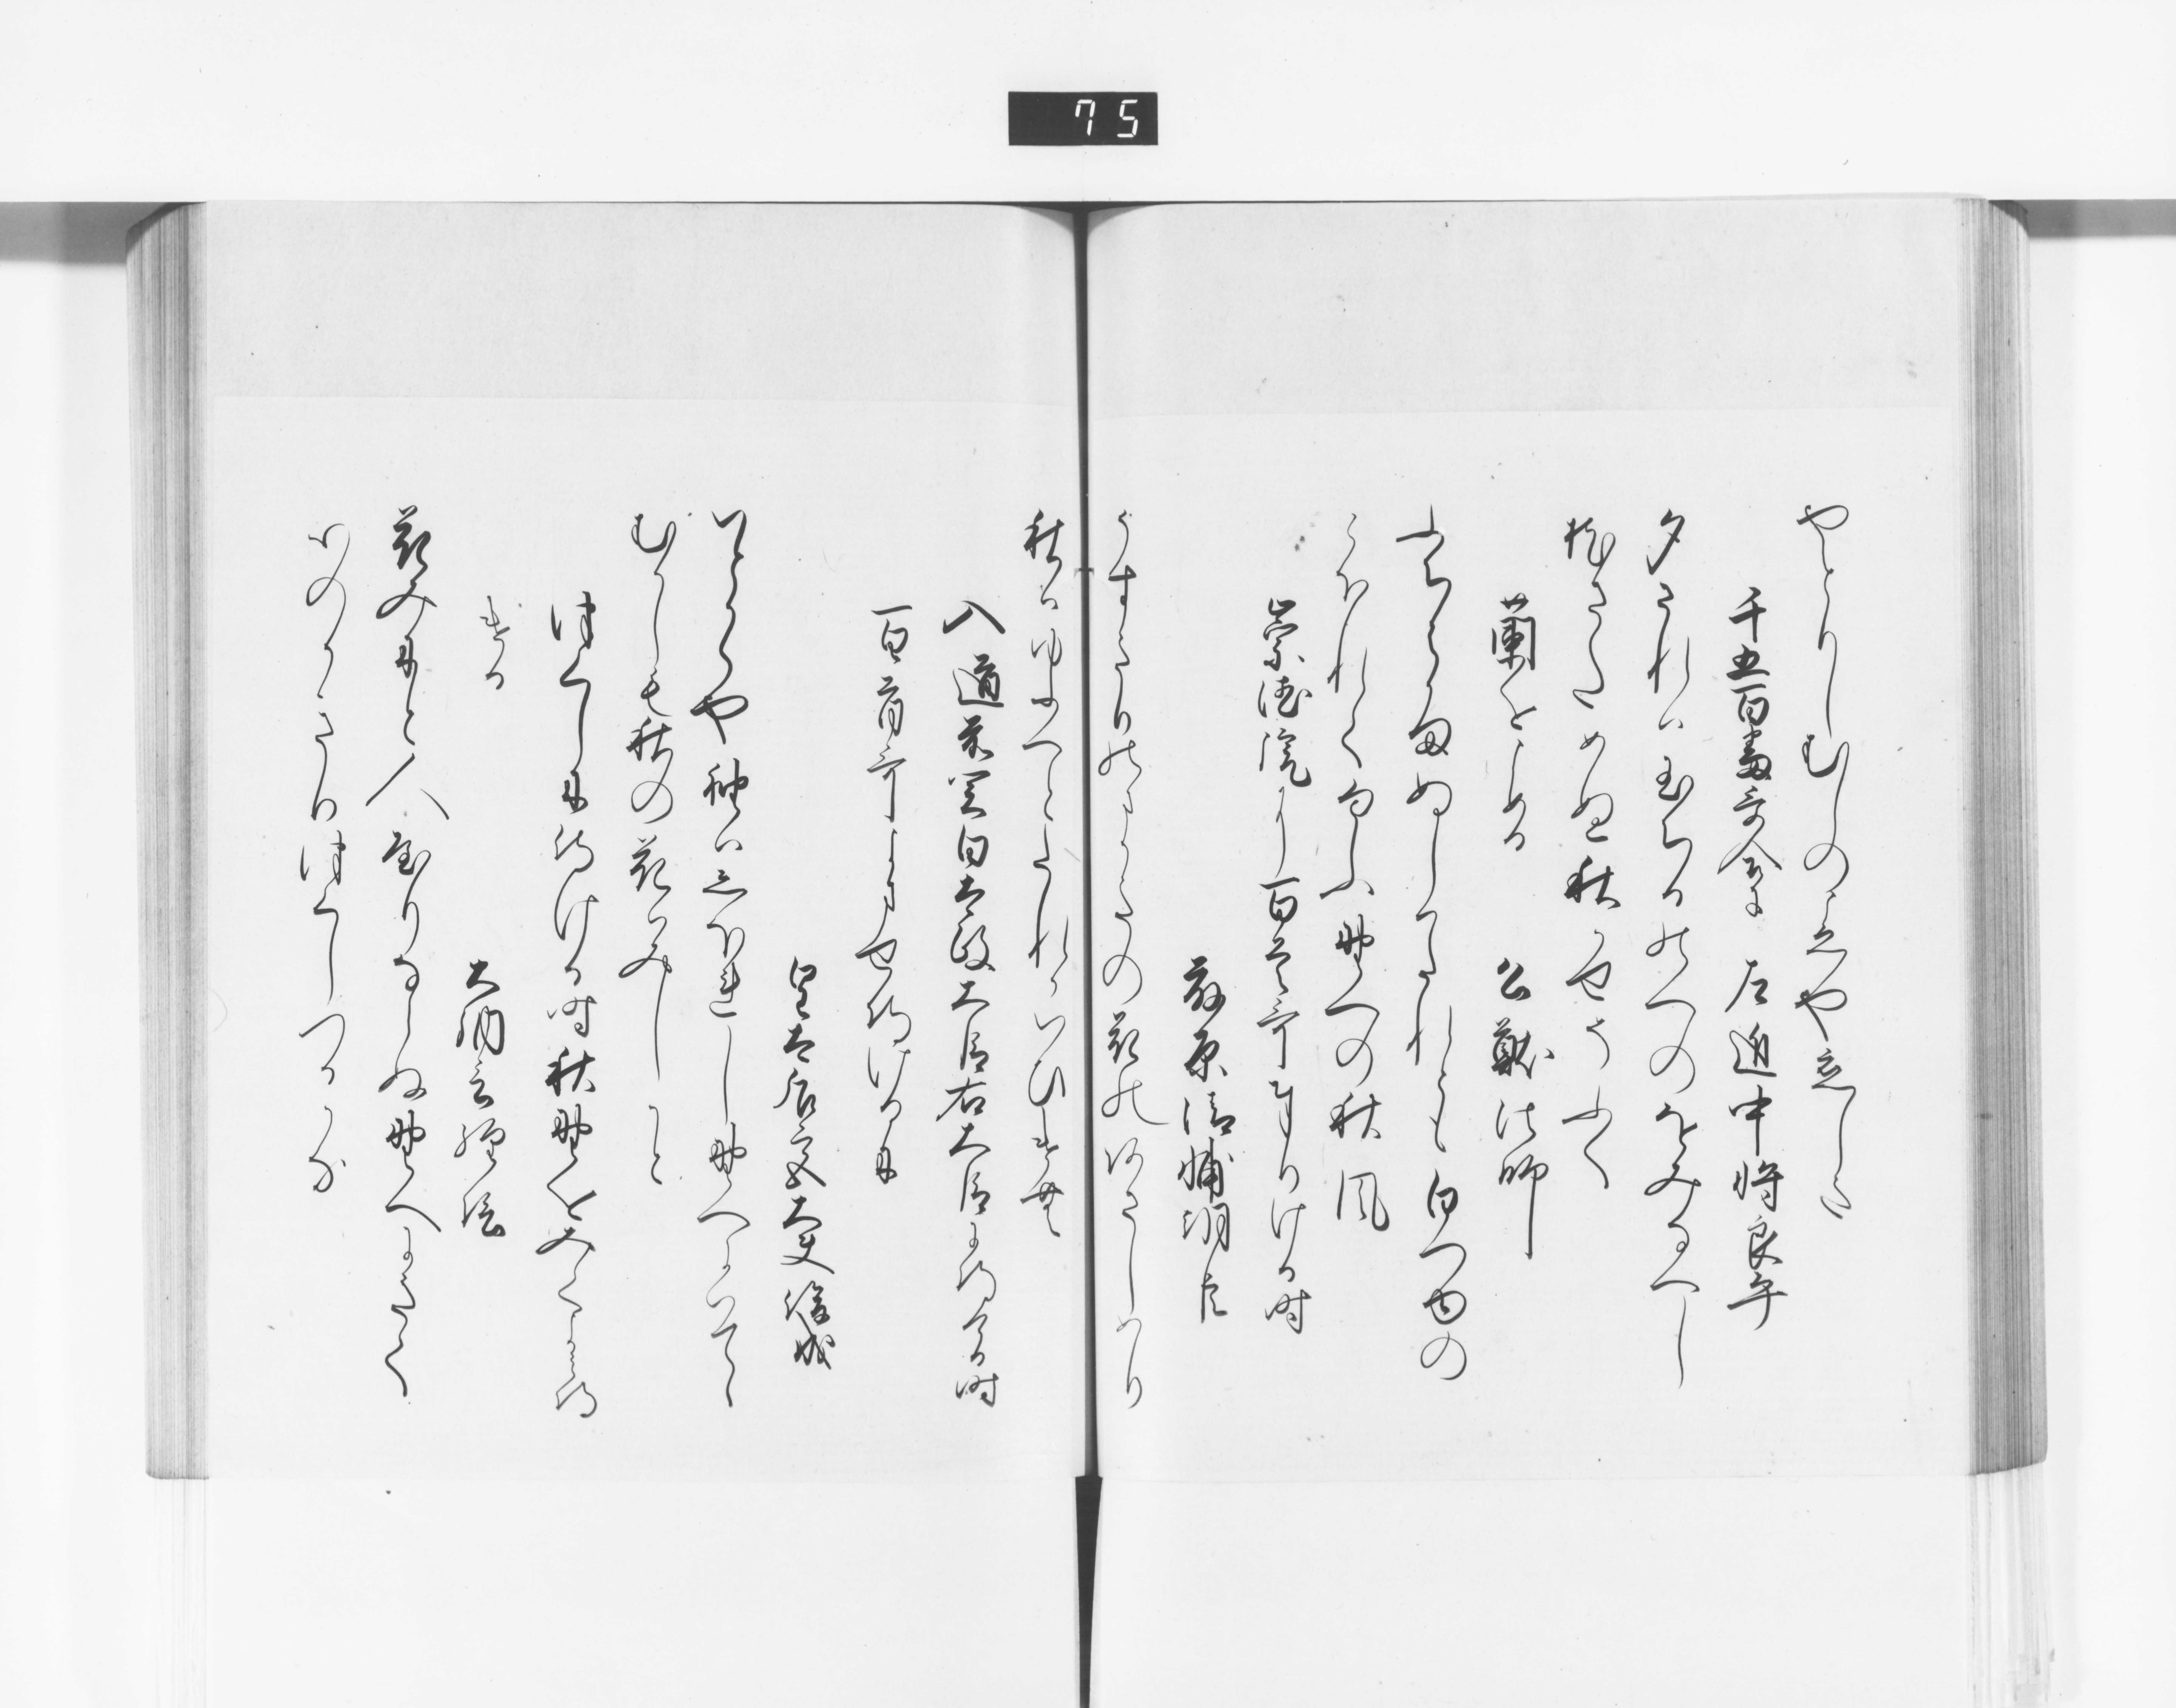 75
やとりしむしのこゑや恋しき
千五百番哥合に　左近中将良平
夕されは玉ちるのへのをみなへし
枕さためぬ秋かせそふく
蘭をよめる　公猷法師
ふちはかまぬしはたれともしらつゆの
こほれてにほふ野へのの秋風
崇徳院に百首哥たてまつりける時
藤原清輔朝臣
うすきりのまかきの花のあさしめり
秋はゆふへとたれかいひけむ
入道前関白太政大臣右大臣に侍ける時
百首哥よませ侍けるに
皇太后宮大夫俊成
いとかくや袖はしほれし野へにいてゝ
むかしも秋の花はみしかと
つくしに侍ける時秋野をみてよみ侍
ける
大納言経信
花みにと人やりならぬ野へにきて
心のかきりつくしつるかな